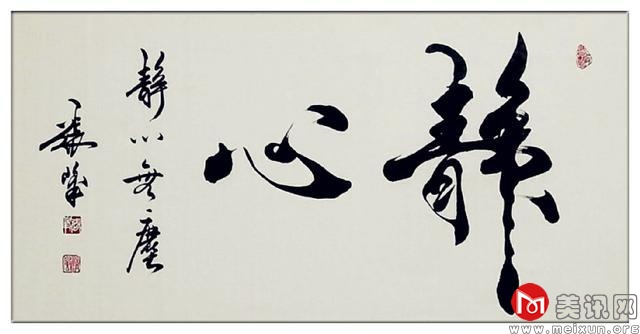 静心
静心無塵
美讯网
www.meixun.org